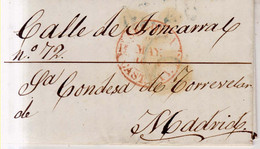 Calle de Foncarral
nº 72.
Sª Condesa de Torrevelar
de
Madrid.